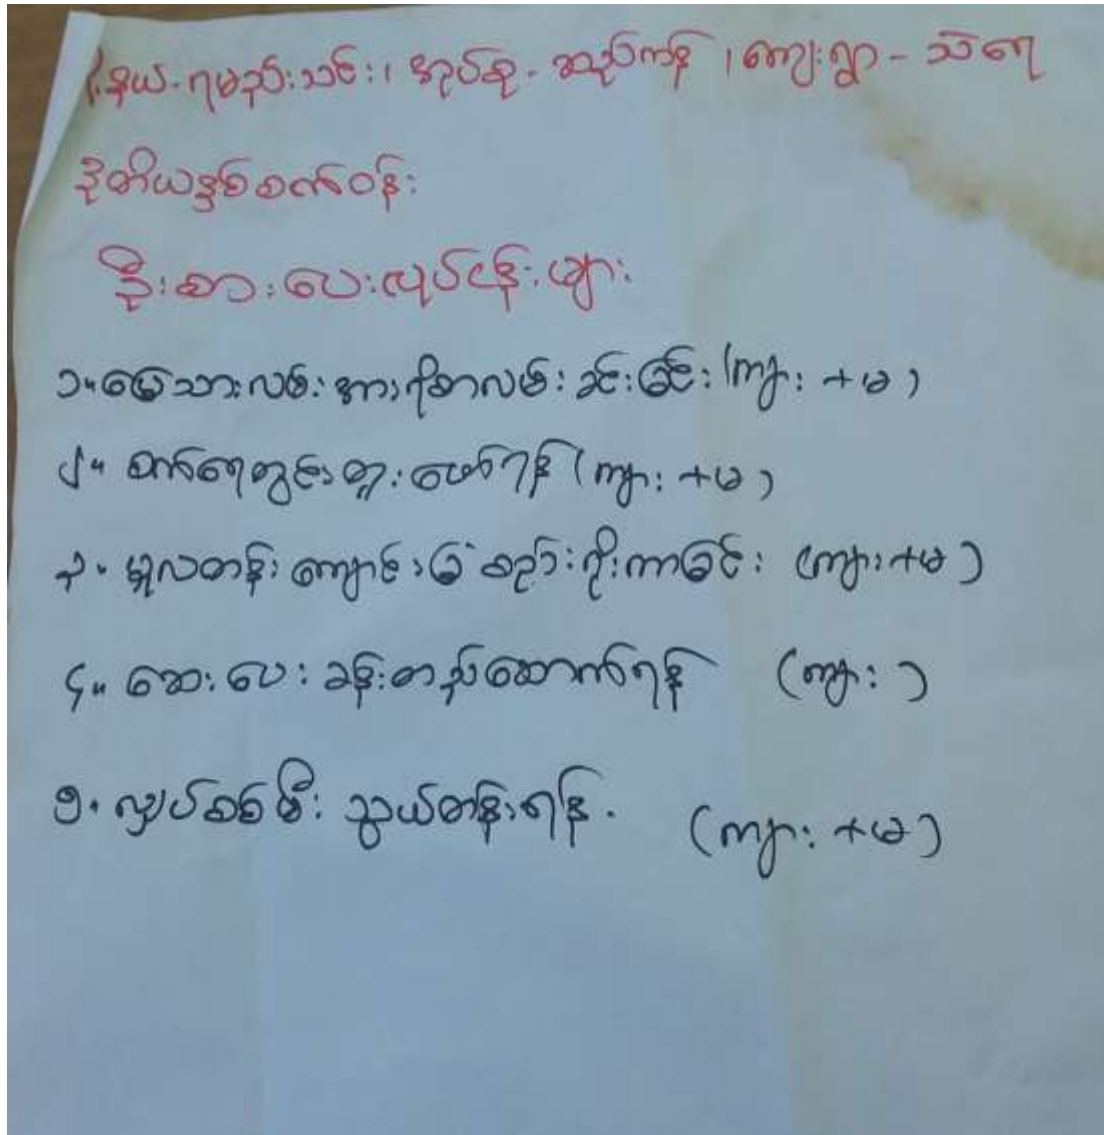 မြို့နယ်-ရမည်းသင်း၊ အုပ်စု-ဆည်ကန်၊ ကျေးရွာ-သဲရေ
ဒုတိယနှစ်စက်ဝန်း
ဦးစားပေးလုပ်ငန်းများ
၁။ မြေသားလမ်းအား ဂိုစာလမ်းခင်းခြင်း (ကျား + မ)
၂။ စက်ရေတွင်းတူးဖော်ရန် (ကျား + မ)
၃။ မူလတန်းကျောင်းခြံစည်းရိုးကာခြင်း (ကျား + မ)
၄။ ဆေးပေးခန်းတည်ဆောက်ရန် (ကျား)
၅။ လျှပ်စစ်မီးသွယ်တန်းရန်. (ကျား + မ)